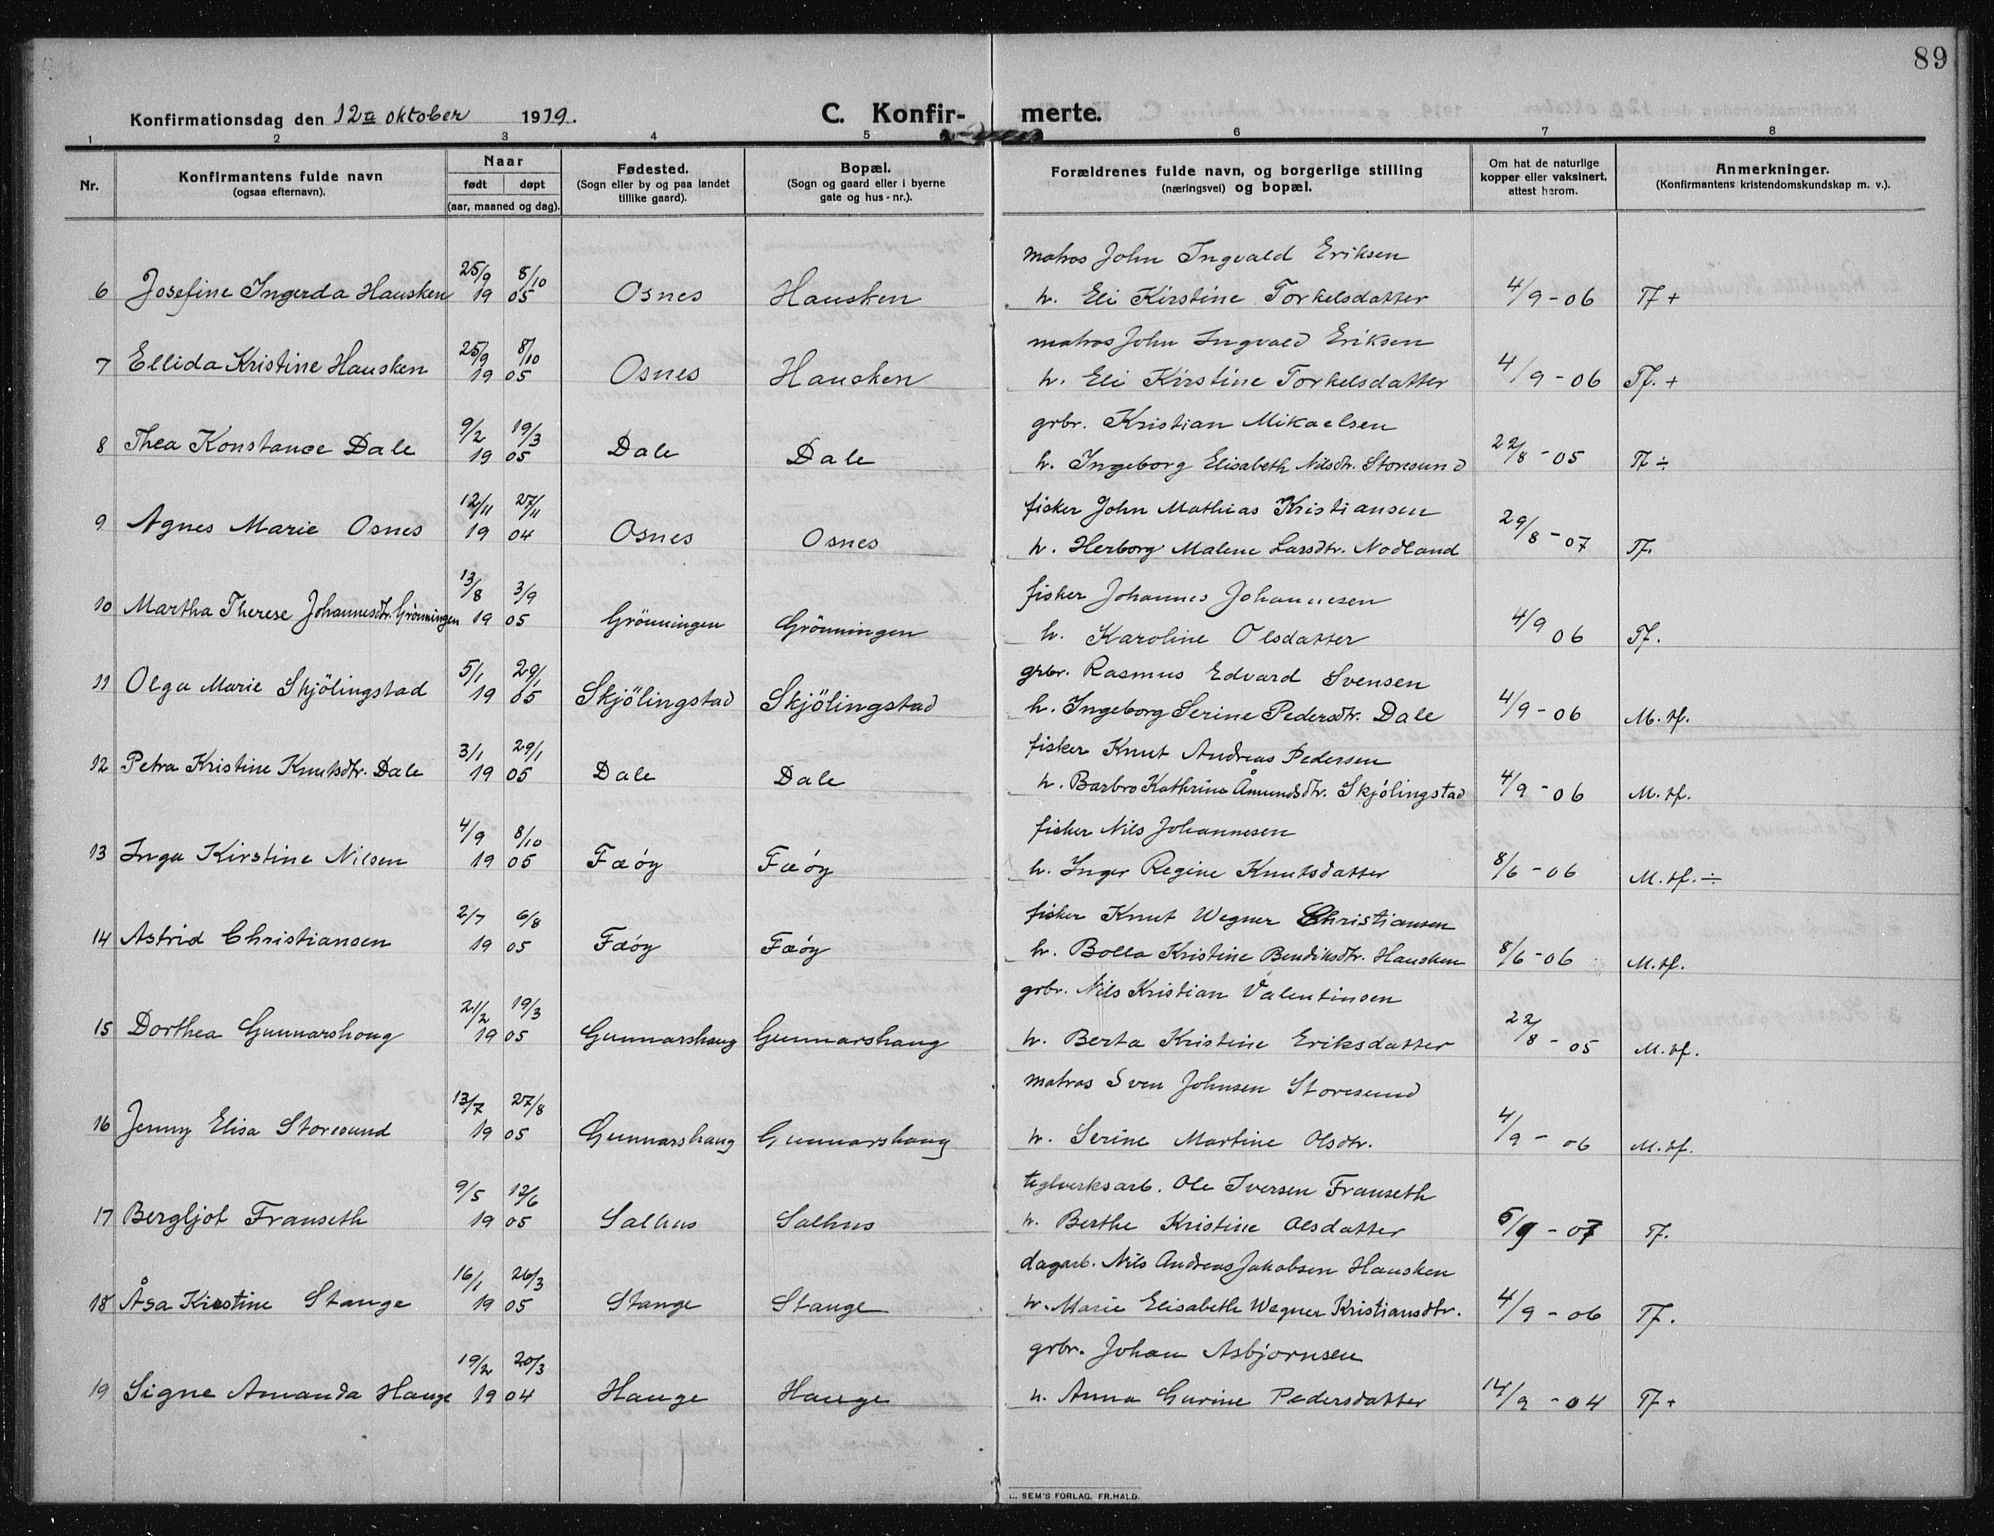 89
Konfirmationsdag den 12te oktober 1919.
C. Konfirmerte.
1 2 3 4 5 6 7 8
Nr. Konfirmantens fulde navn (ogsaa efternavn). Naar født døpt (aar, maaned og dag). Fødested. (Sogn eller by og paa landet tillike gaard). Bopæl. (Sogn og gaard eller i byerne gate og hus-nr.). Forældrenes fulde navn, og borgerlige stilling (næringsvei) og bopæl. Om hat de naturlige kopper eller vaksinert, attest herom. Anmerkninger. (Konfirmantens kristendomskundskap m. v.).
25/9 8/10 matros John Ingvald Eriksen
6 Josefine Ingerda Hausken 19 05 Osnes Hausken h. Eli Kirstine Torkelsdatter 4/9-06 Tf +
25/9 8/10 matros John Ingvald Eriksen
7 Ellida Kristine Hausken 19 05 Osnes Hausken h. Eli Kirstine Torkelsdatter 4/9-06 Tf. +
9/2 19/3 grbr. Kristian Mikaelsen
8 Thea Konstance Dale 19 05 Dale Dale h. Ingeborg Elisabeth Nilsdtr. Storesund 22/8-05 Tf ÷
12/11 27/11 fisker John Mathias Kristiansen
9 Agnes Marie Osnes 19 04 Osnes Osnes h. Herborg Malene Larsdtr. Nodland 29/8-07 Tf.
13/8 3/9 fisker Johannes Johannesen
10 Martha Therese Johannesdtr. Grönningen 19 05 Grönningen Grönningen h. Karoline Olsdatter 4/9 06 Tf.
5/1 29/1 grbr. Rasmus Edvard Svensen
11 Olga Marie Skjölingstad 19 05 Skjölingstad Skjölingstad h. Ingeborg Serine Pedersdtr. Dale 4/9-06 M. tf.
3/1 29/1 fisker Knut Andreas Pedersen
12 Petra Kristine Knutsdtr. Dale 19 05 Dale Dale h. Barbro Kathrine Åmundsdtr. Skjölingstad 4/9-06 M. tf.
4/9 8/10 fisker Nils Johannesen
13 Inga Kirstine Nilsen 19 05 Fæöy Fæöy h. Inger Regine Knutsdatter 8/6-06 M. tf. ÷
2/7 6/8 fisker Knut Wegner Christiansen
14 Astrid Christiansen 19 05 Fæöy Fæöy h. Bolla Kristine Bendiksdtr. Hausken 8/6-06 M. tf.
21/2 19/3 grbr. Nils Kristian Valentinsen
15 Dorthea Gunnarshoug 19 05 Gunnarshaug Gunnarshaug h. Berta Kristine Eriksdatter 22/8-05 M. tf.
13/7 27/8 matros Sven Johnsen Storesund
16 Jenny Elisa Storesund 19 05 Gunnarshaug Gunnarshaug h. Serine Martine Olsdtr. 4/9-06 M. tf.
9/5 12/6 teglverksarb. Ole Iversen Franseth
17 Bergljot Franseth 19 05 Salhus Salhus h. Berthe Kristine Olsdatter 5/9-07 Tf.
16/1 26/3 dagarb. Nils Andreas Jakobsen Hausken
18 Åsa Kirstine Stange 19 05 Stange Stange h. Marie Elisabeth Wegner Kristiansdtr. 4/9-06 Tf.
19/2 20/3 grbr. Johan Asbjörnsen
19 Signe Amanda Hauge 19 04 Hauge Hauge h. Anna Gurine Pedersdatter 14/9-04 Tf +
SEM'S FORLAG, FR.HALD.